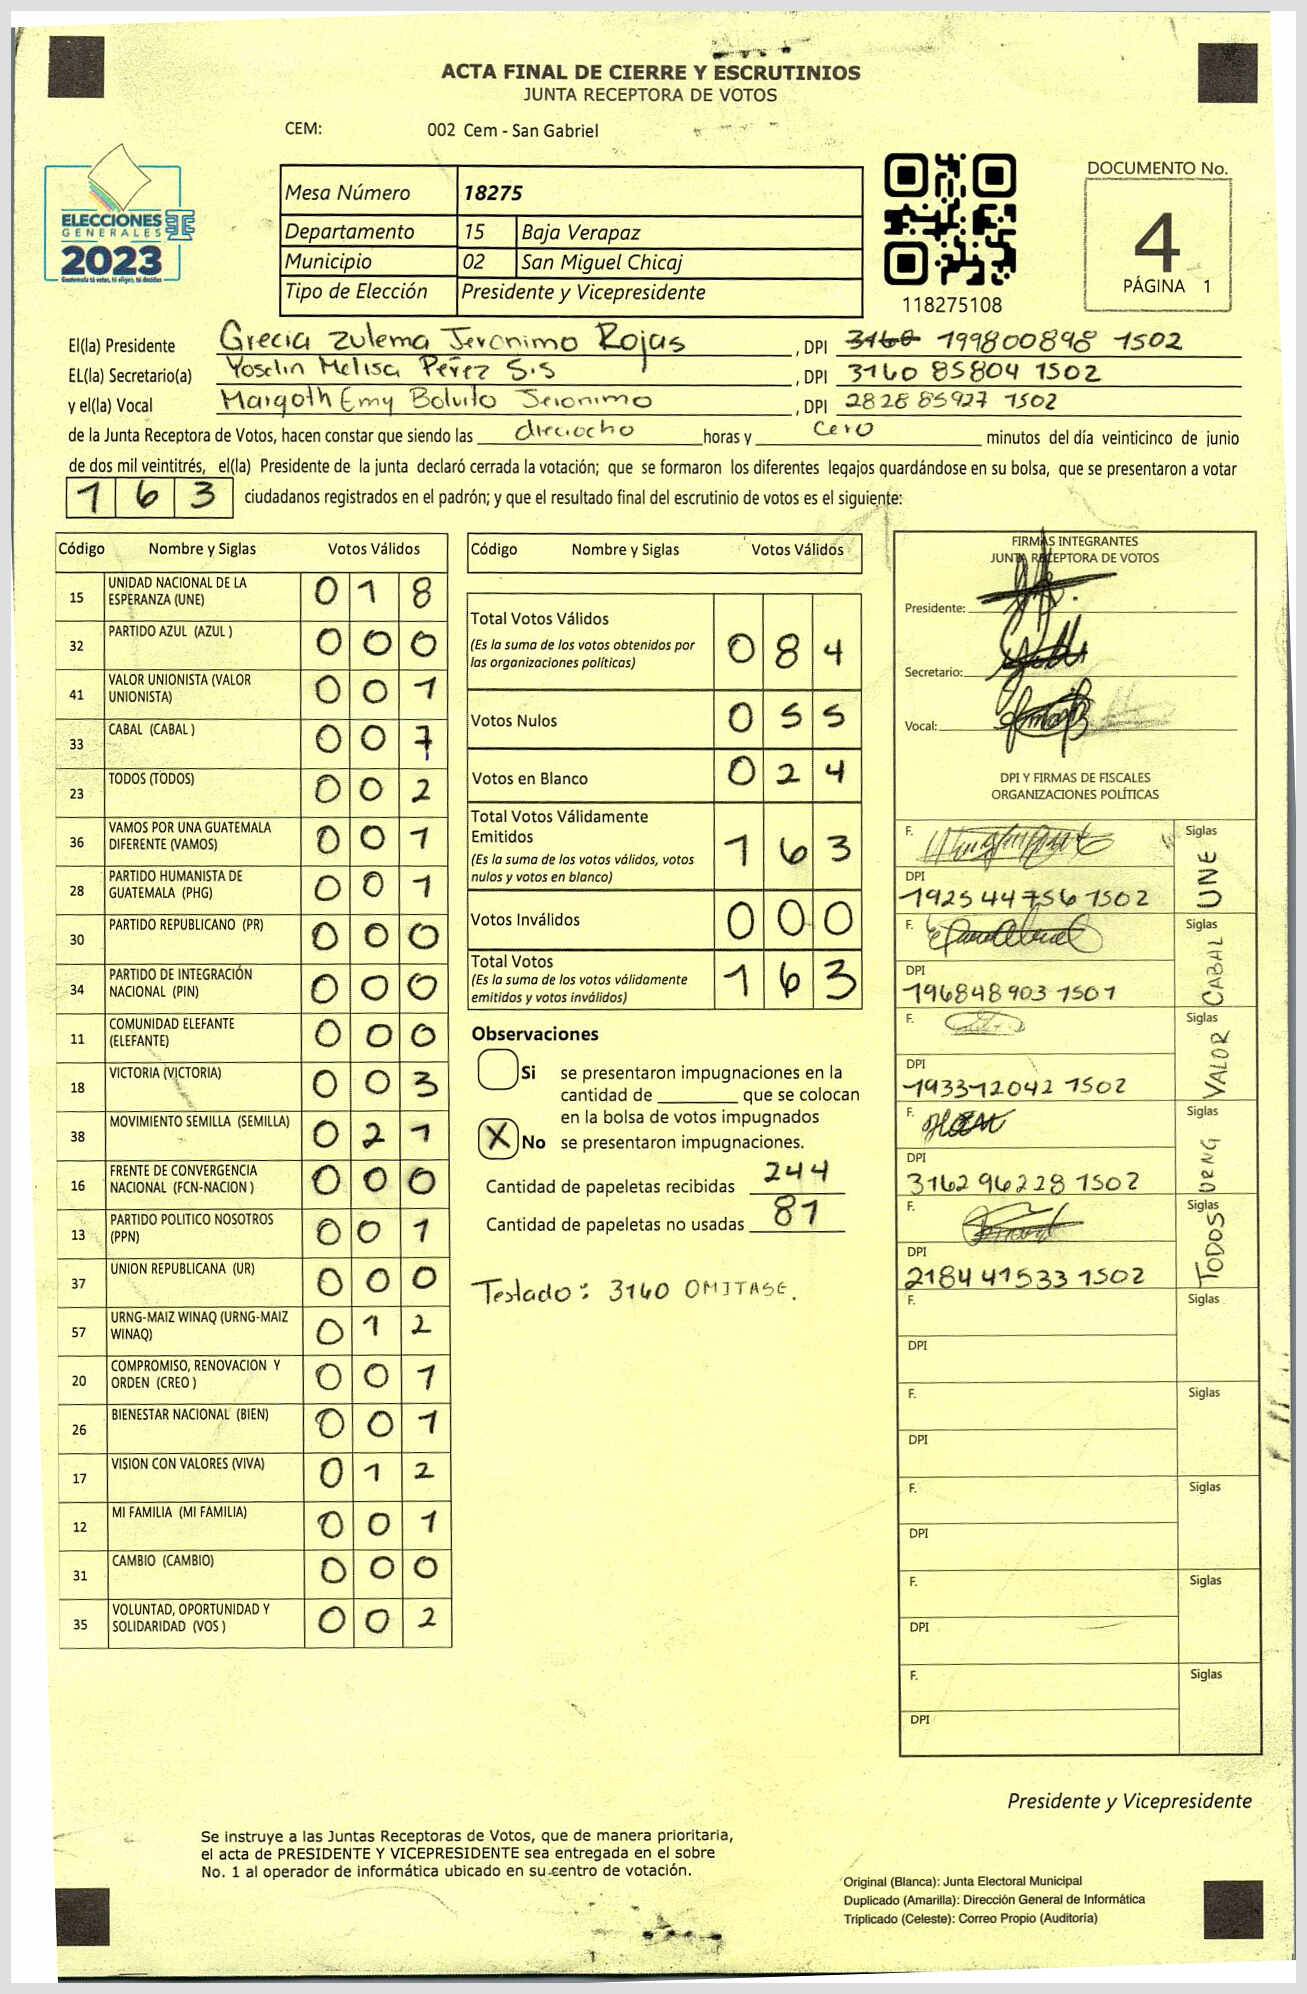 ACTA FINAL DE CIERRE Y ESCRUTINIOS
JUNTA RECEPTORA DE VOTOS
CEM: 002 Cem - San Gabriel
ELECCIONES
GENERALES
2023
Guatemala tú votas, tú eliges, tú decides
Mesa Número 18275
Departamento 15 Baja Verapaz
Municipio 02 San Miguel Chicaj
Tipo de Elección Presidente y Vicepresidente
118275108
DOCUMENTO No.
4
PÁGINA 1
El(la) Presidente Grecia Zulema Jeronimo Rojas, DPI 3160 199800898 1502
EL(la) Secretario(a) Yoselin Melisa Pérez S.s, DPI 3160 85804 1502
y el(la) Vocal Margoth Emy Bolvito Jeronimo, DPI 2828 85927 1502
de la Junta Receptora de Votos, hacen constar que siendo las dieciocho horas y cero minutos del día veinticinco de junio
de dos mil veintitrés, el(la) Presidente de la junta declaró cerrada la votación; que se formaron los diferentes legajos guardándose en su bolsa, que se presentaron a votar
163 ciudadanos registrados en el padrón; y que el resultado final del escrutinio de votos es el siguiente:
Código Nombre y Siglas Votos Válidos
15 UNIDAD NACIONAL DE LA ESPERANZA (UNE) 018
32 PARTIDO AZUL (AZUL ) 000
41 VALOR UNIONISTA (VALOR UNIONISTA) 001
33 CABAL (CABAL ) 007
23 TODOS (TODOS) 002
36 VAMOS POR UNA GUATEMALA DIFERENTE (VAMOS) 001
28 PARTIDO HUMANISTA DE GUATEMALA (PHG) 001
30 PARTIDO REPUBLICANO (PR) 000
34 PARTIDO DE INTEGRACIÓN NACIONAL (PIN) 000
11 COMUNIDAD ELEFANTE (ELEFANTE) 000
18 VICTORIA (VICTORIA) 003
38 MOVIMIENTO SEMILLA (SEMILLA) 021
16 FRENTE DE CONVERGENCIA NACIONAL (FCN-NACION ) 000
13 PARTIDO POLITICO NOSOTROS (PPN) 001
37 UNION REPUBLICANA (UR) 000
57 URNG-MAIZ WINAQ (URNG-MAIZ WINAQ) 012
20 COMPROMISO, RENOVACION Y ORDEN (CREO ) 001
26 BIENESTAR NACIONAL (BIEN) 001
17 VISION CON VALORES (VIVA) 012
12 MI FAMILIA (MI FAMILIA) 001
31 CAMBIO (CAMBIO) 000
35 VOLUNTAD, OPORTUNIDAD Y SOLIDARIDAD (VOS ) 002
Código Nombre y Siglas Votos Válidos
Total Votos Válidos 084
(Es la suma de los votos obtenidos por
las organizaciones políticas)
Votos Nulos 055
Votos en Blanco 024
Total Votos Válidamente
Emitidos 163
(Es la suma de los votos válidos, votos
nulos y votos en blanco)
Votos Inválidos 000
Total Votos 163
(Es la suma de los votos válidamente
emitidos y votos inválidos)
Observaciones
Si se presentaron impugnaciones en la
cantidad de ________ que se colocan
en la bolsa de votos impugnados
X No se presentaron impugnaciones.
Cantidad de papeletas recibidas 244
Cantidad de papeletas no usadas 81
Testado: 3160 OMITASE.
FIRMAS INTEGRANTES
JUNTA RECEPTORA DE VOTOS
Presidente:
Secretario:
Vocal:
DPI Y FIRMAS DE FISCALES
ORGANIZACIONES POLÍTICAS
F. Siglas UNE
DPI
1925 44756 1502
F. Siglas CABAL
DPI
196848903 1501
F. Siglas VALOR
DPI
193312042 1502
F. Siglas URNG
DPI
3162 96228 1502
F. Siglas TODOS
DPI
2184 41533 1502
F. Siglas
DPI
F. Siglas
DPI
F. Siglas
DPI
F. Siglas
DPI
F. Siglas
DPI
Presidente y Vicepresidente
Se instruye a las Juntas Receptoras de Votos, que de manera prioritaria,
el acta de PRESIDENTE Y VICEPRESIDENTE sea entregada en el sobre
No. 1 al operador de informática ubicado en su centro de votación.
Original (Blanca): Junta Electoral Municipal
Duplicado (Amarilla): Dirección General de Informática
Triplicado (Celeste): Correo Propio (Auditoría)